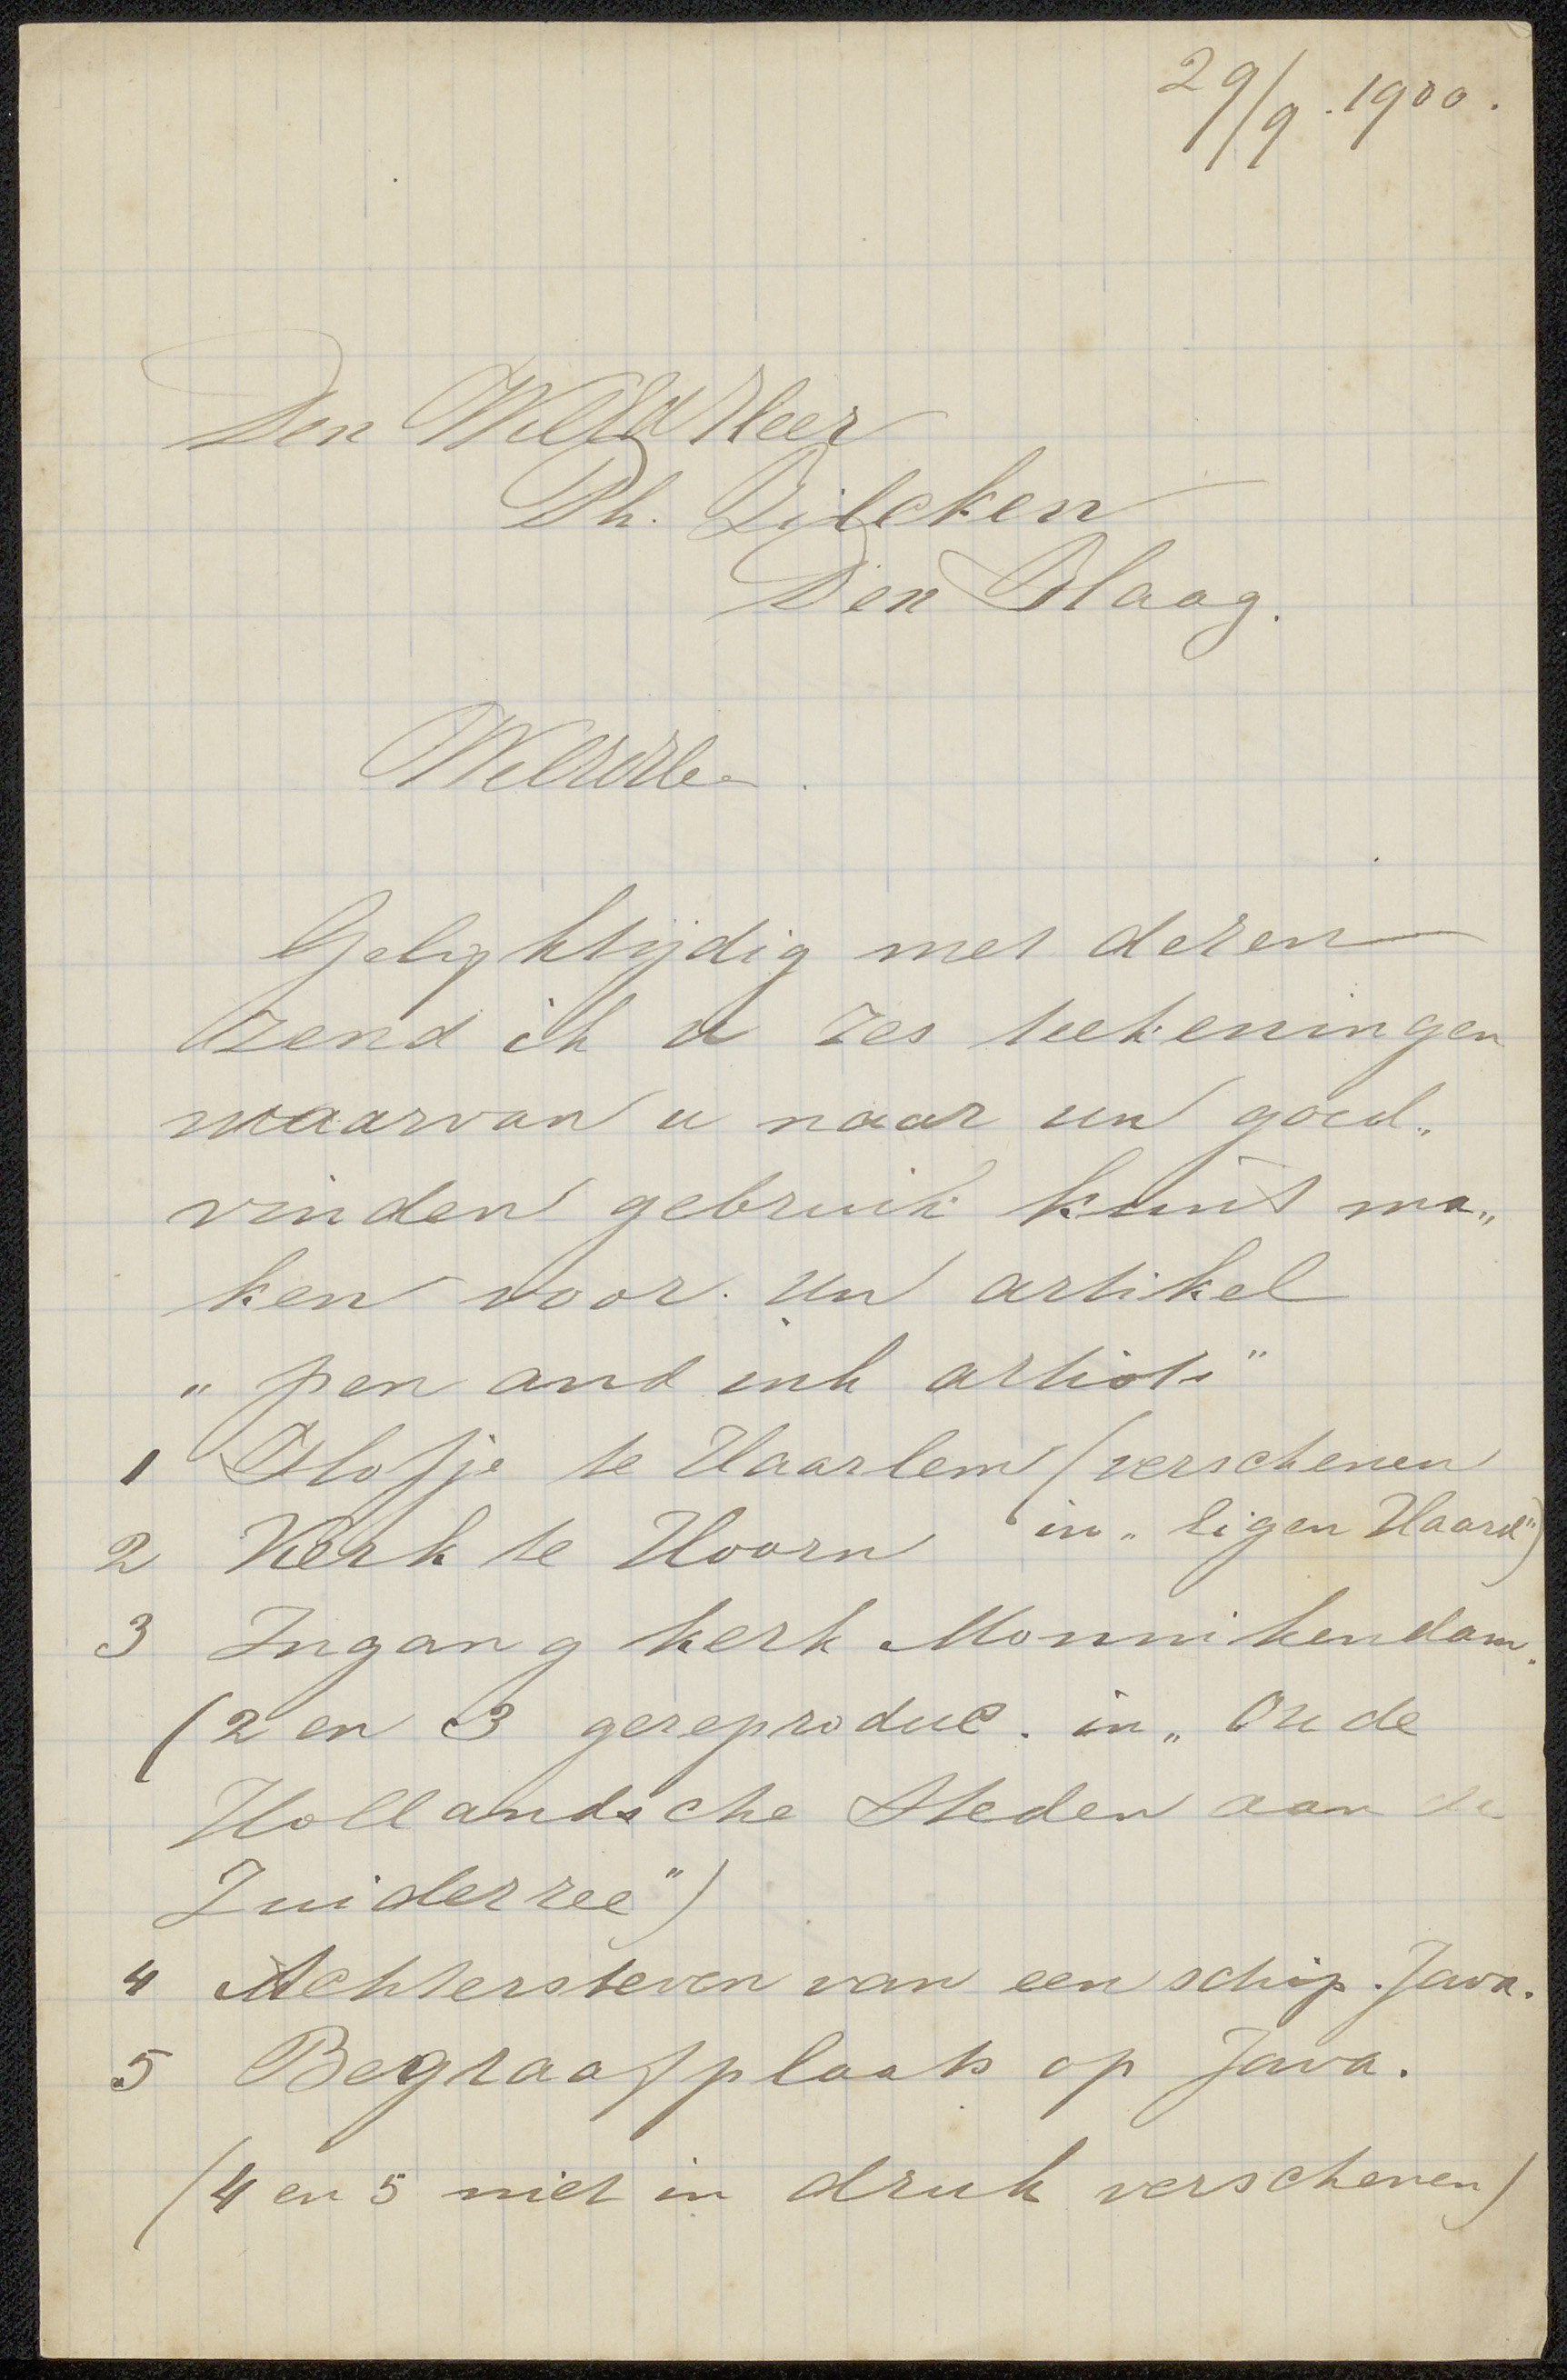 29/9. 1900.
Den WelEd Heer
Ph. Zilcken
Den Haag.
WelEdHeer.
Gelijktijdig met dezen
zend ik u zes teekeningen
waarvan u naar uw goed„
vinden gebruik kunt ma„
ken voor uw artikel
„ pen and ink artists"
1 Hofje te Haarlem (verschenen
in „ Eigen Haard")
2 Kerk te Hoorn
3 Ingang kerk Monnikendam.
(2 en 3 gereproduc. in „ Oude
Hollandsche Steden aan de
Zuiderzee")
4 Achtersteven van een schip. Java.
5 Begraafplaats op Java.
(4 en 5 niet in druk verschenen)